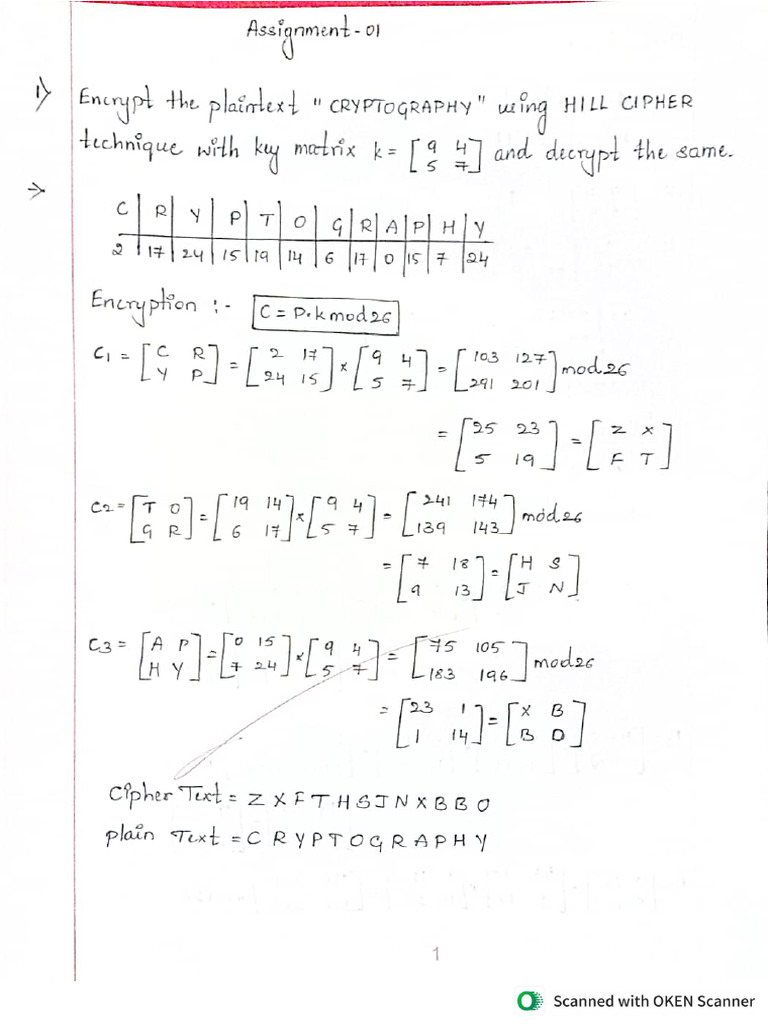 Assignment-01
1) Encrypt the plaintext "CRYPTOGRAPHY" using HILL CIPHER
technique with key matrix k = [9 4
5 7] and decrypt the same.
→
C | R | Y | P | T | O | G | R | A | P | H | Y
2 | 17 | 24 | 15 | 19 | 14 | 6 | 17 | 0 | 15 | 7 | 24
Encryption :- C = P.k mod 26
C1 = [C R
Y P] = [2 17
24 15] × [9 4
5 7] = [103 127
291 201] mod 26
= [25 23
5 19] = [Z X
F T]
C2 = [T O
G R] = [19 14
6 17] × [9 4
5 7] = [241 174
139 143] mod 26
= [7 18
9 13] = [H S
J N]
C3 = [A P
H Y] = [0 15
7 24] × [9 4
5 7] = [75 105
183 196] mod 26
= [23 1
1 14] = [X B
B O]
Cipher Text = Z X F T H S J N X B B O
plain Text = C R Y P T O G R A P H Y
1
Scanned with OKEN Scanner